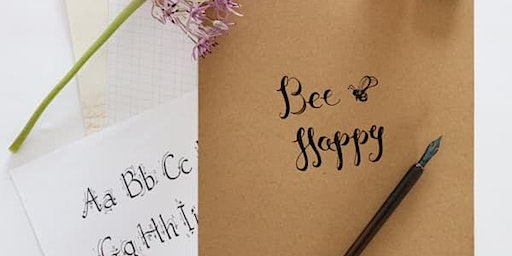 Bee
Happy
Aa Bb Cc
Gg Hh Ii